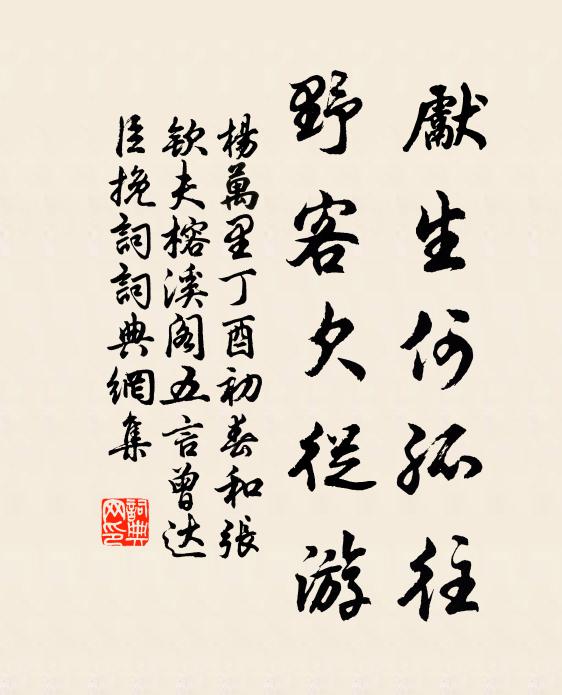 獻生何孤往
野客欠從游
楊萬里丁酉初春和張
欽夫榕溪閣五言曾达
臣挽詞詞典網集
詞典
网印